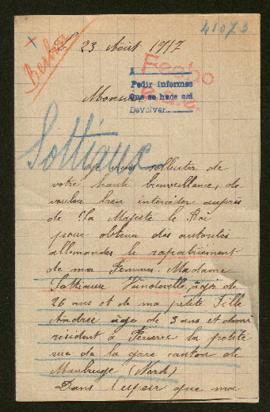 41073
23 Août 1917
Berlin
A
Fecho
Pedir informes
Que se hace así
Devolver
Monsieur
Sottiaux
solliciter de
votre haute bienveillance, de
vouloir bien intercéder auprès
de Sa Majesté le Roi
pour obtenir des autorités
allemandes le rapatriement
de ma Femme, Madame
Sottiaux âgée de
26 ans et de ma petite Fille
Andrée âgée de 3 ans et demi
résidant à Ferrière la petite
rue de la gare canton de
Maubeuge (Nord)
Dans l'espoir que ma